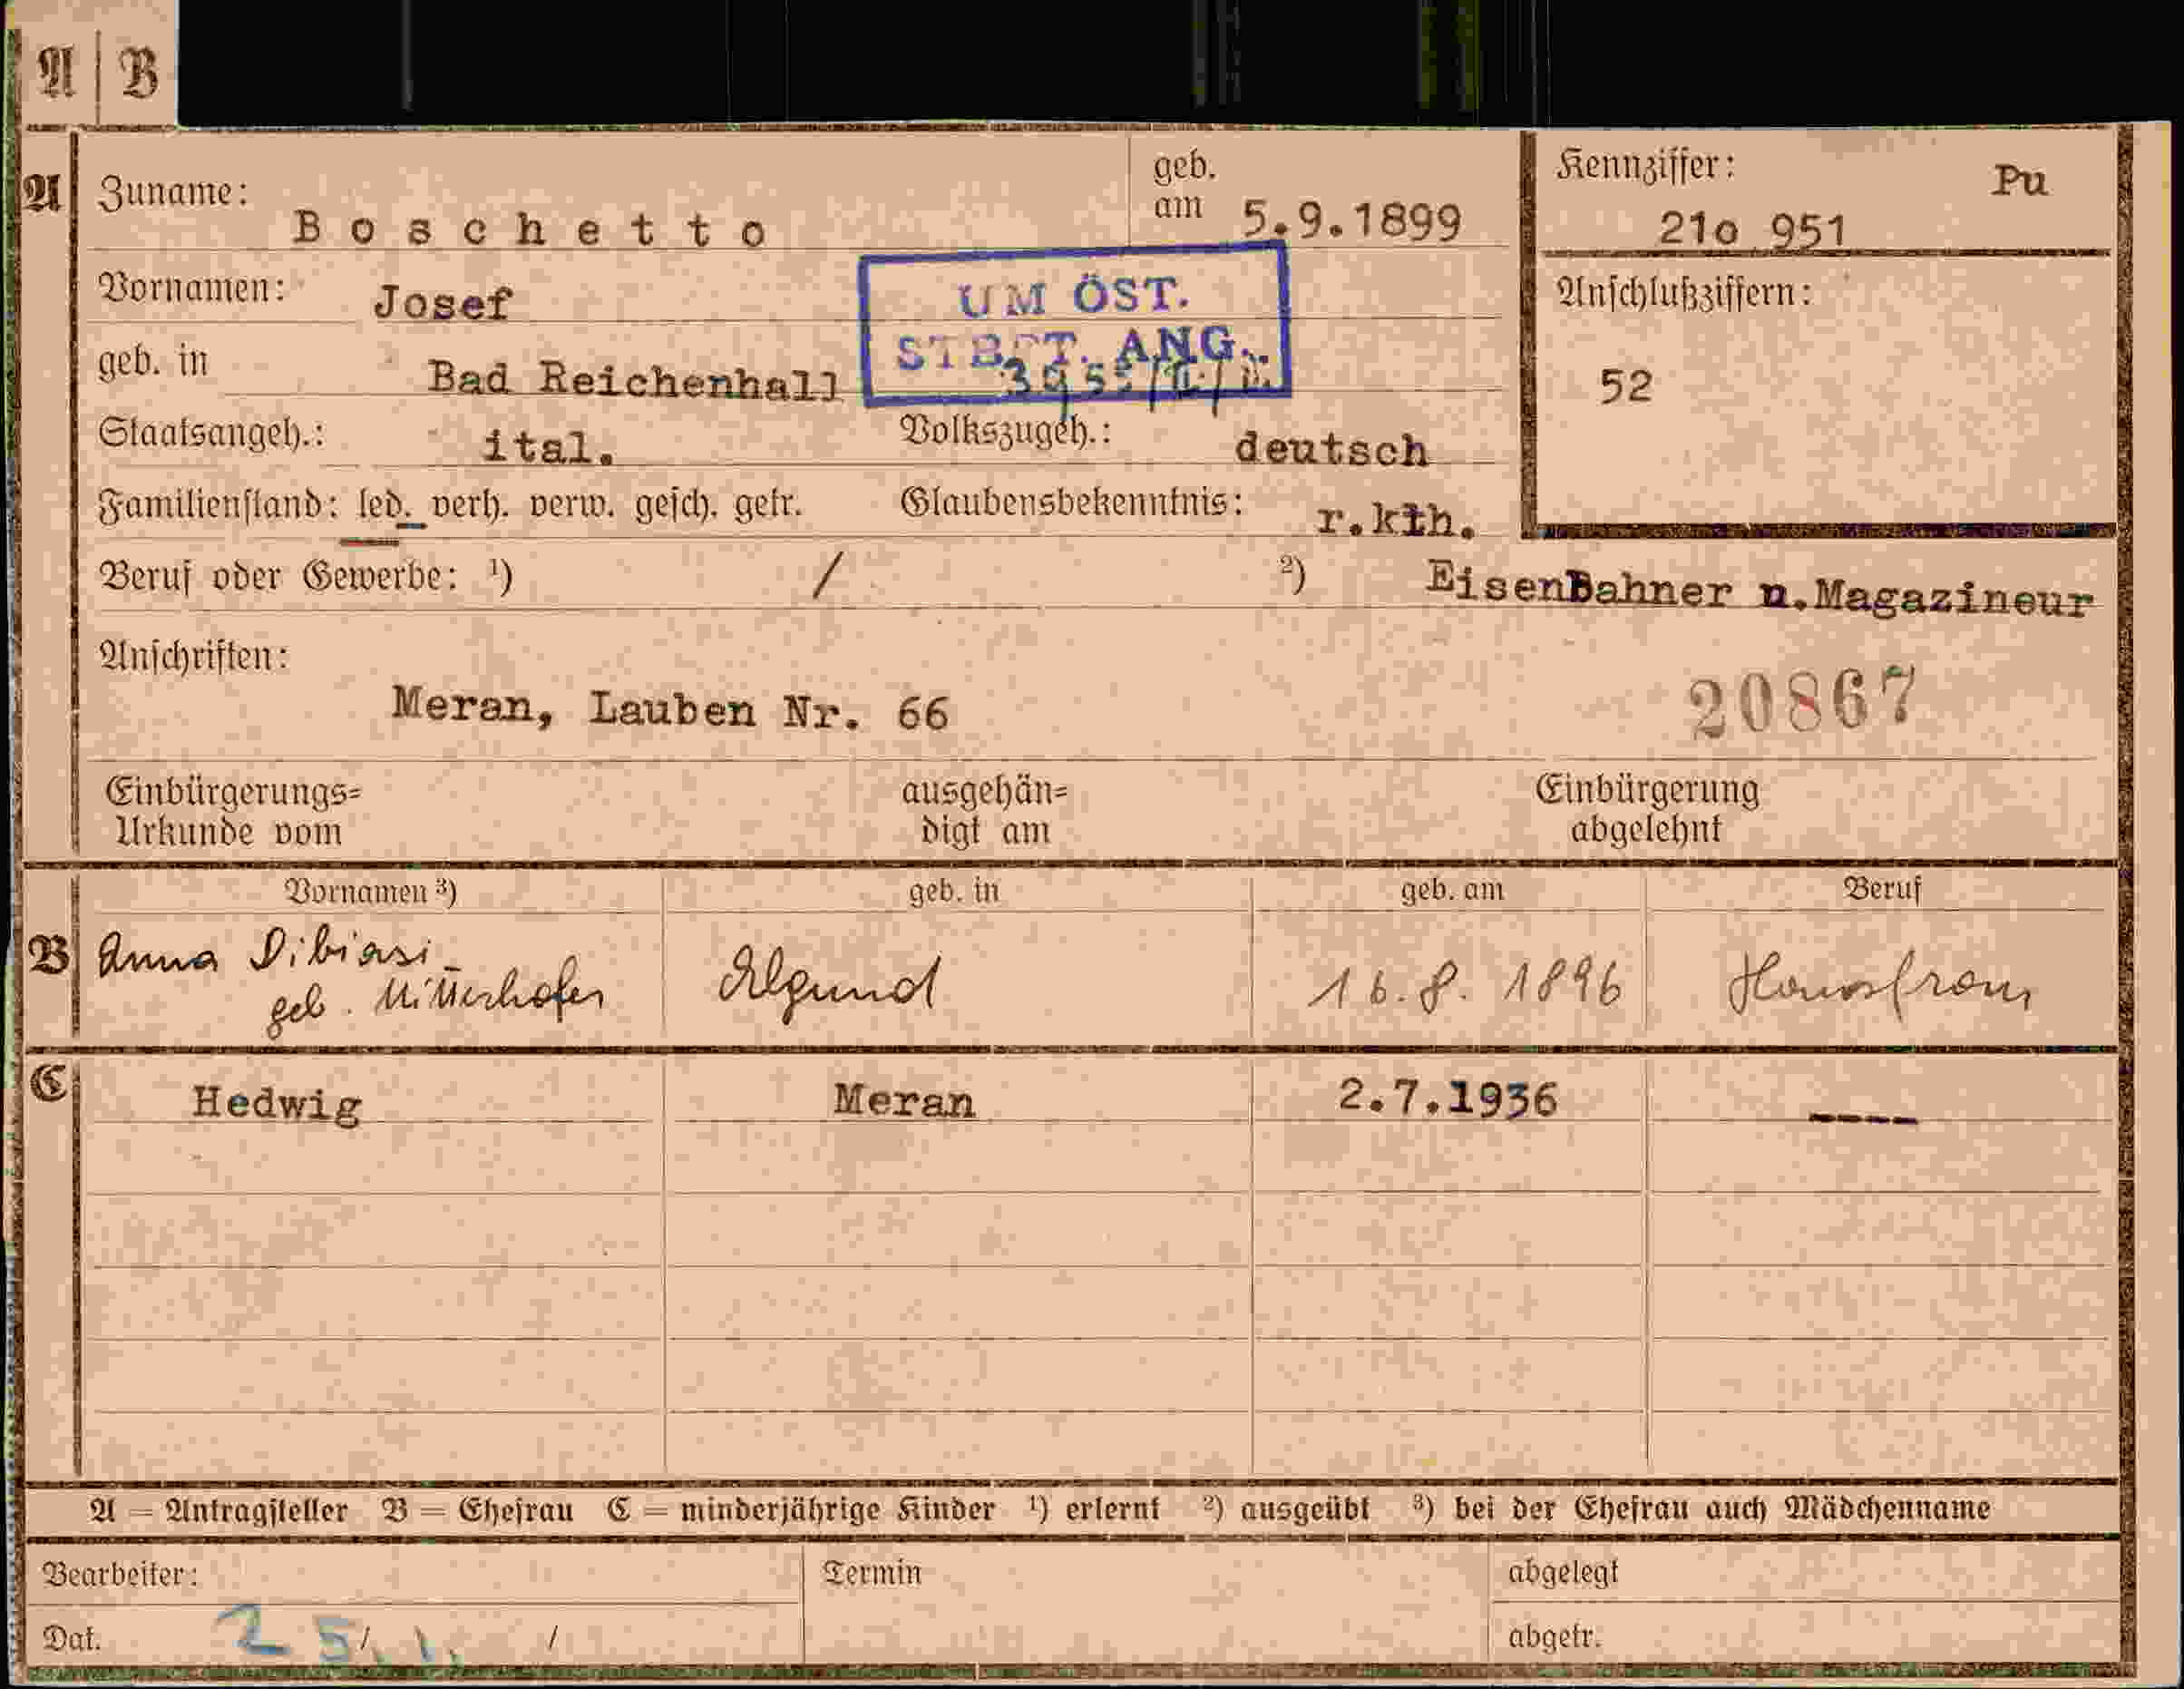 A | B
A Zuname: Boschetto geb. am 5.9.1899 Kennziffer: Pu
21o 951
Vornamen: Josef UM ÖST. Anschlußziffern:
STBGT. ANG.
geb. in Bad Reichenhall 52
Staatsangeh.: ital. Volkszugeh.: deutsch
Familienstand: led. verh. verw. gesch. getr. Glaubensbekenntnis: r.kth.
Beruf oder Gewerbe: ¹) / ²) EisenBahner u.Magazineur
Anschriften:
Meran, Lauben Nr. 66 20867
Einbürgerungs= ausgehän= Einbürgerung
Urkunde vom digt am abgelehnt
Vornamen ³) geb. in geb. am Beruf
B Anna Dibiasi Algund 16.8.1896 Hausfrau
geb. Mitterhofer
C Hedwig Meran 2.7.1936 ----
A = Antragsteller B = Ehefrau C = minderjährige Kinder ¹) erlernt ²) ausgeübt ³) bei der Ehefrau auch Mädchenname
Bearbeiter: Termin abgelegt
Dat. 25./1. / abgetr.